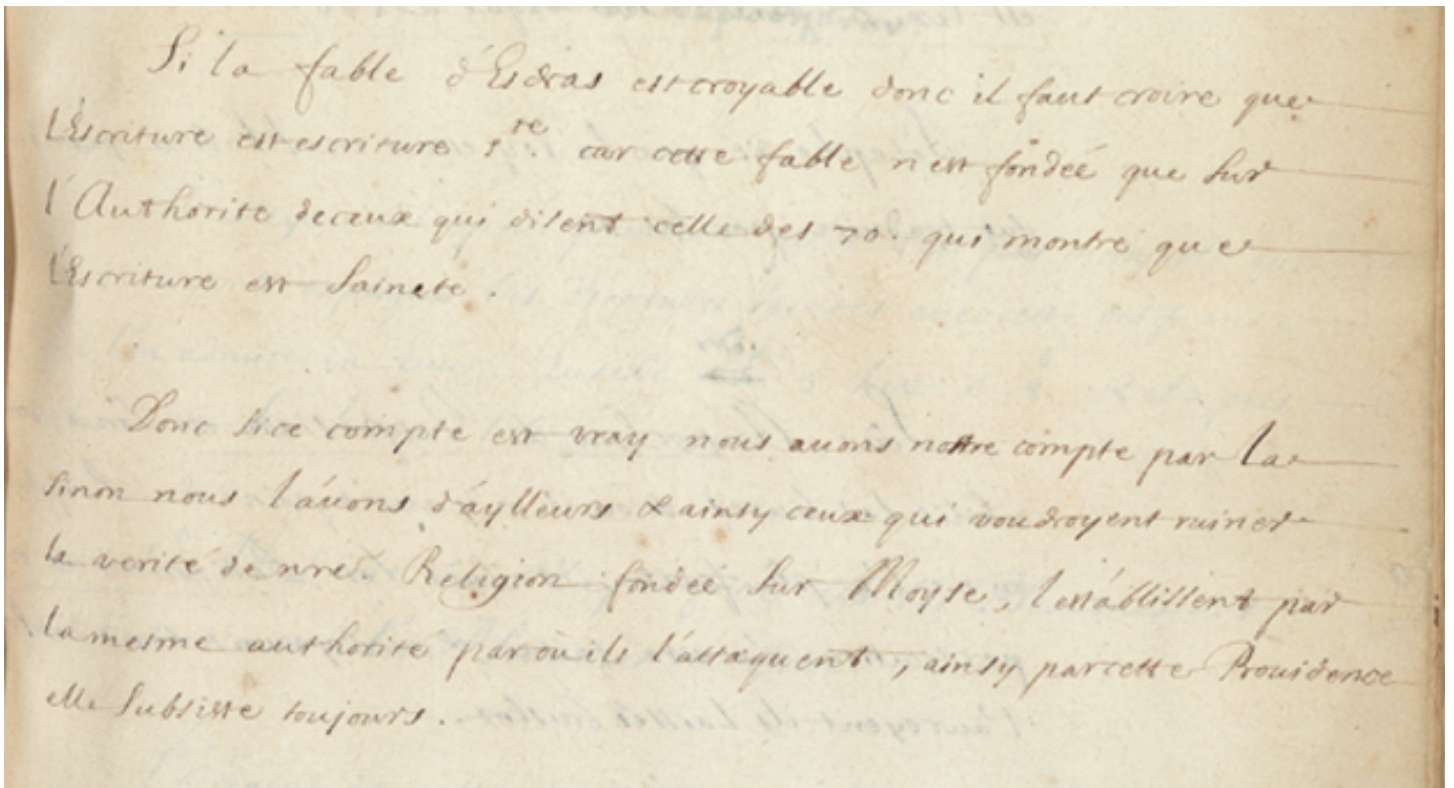 Si la fable d'Esdras est croyable donc il faut croire que
l'Escriture est escriture s.^te car cette fable n'est fondée que sur
l'Authorité de ceux qui disent celle des 70. qui montre que
l'Escriture est Saincte.
Donc si ce compte est vray nous auons nostre compte par la
sinon nous l'auons d'aylleurs & ainsy ceux qui voudroyent ruiner
la verité de nre. Religion fondée sur Moyse, l'establissent par
la mesme authorité par ou ils l'attaquent, ainsy par cette Prouidence
elle subsiste toujours.